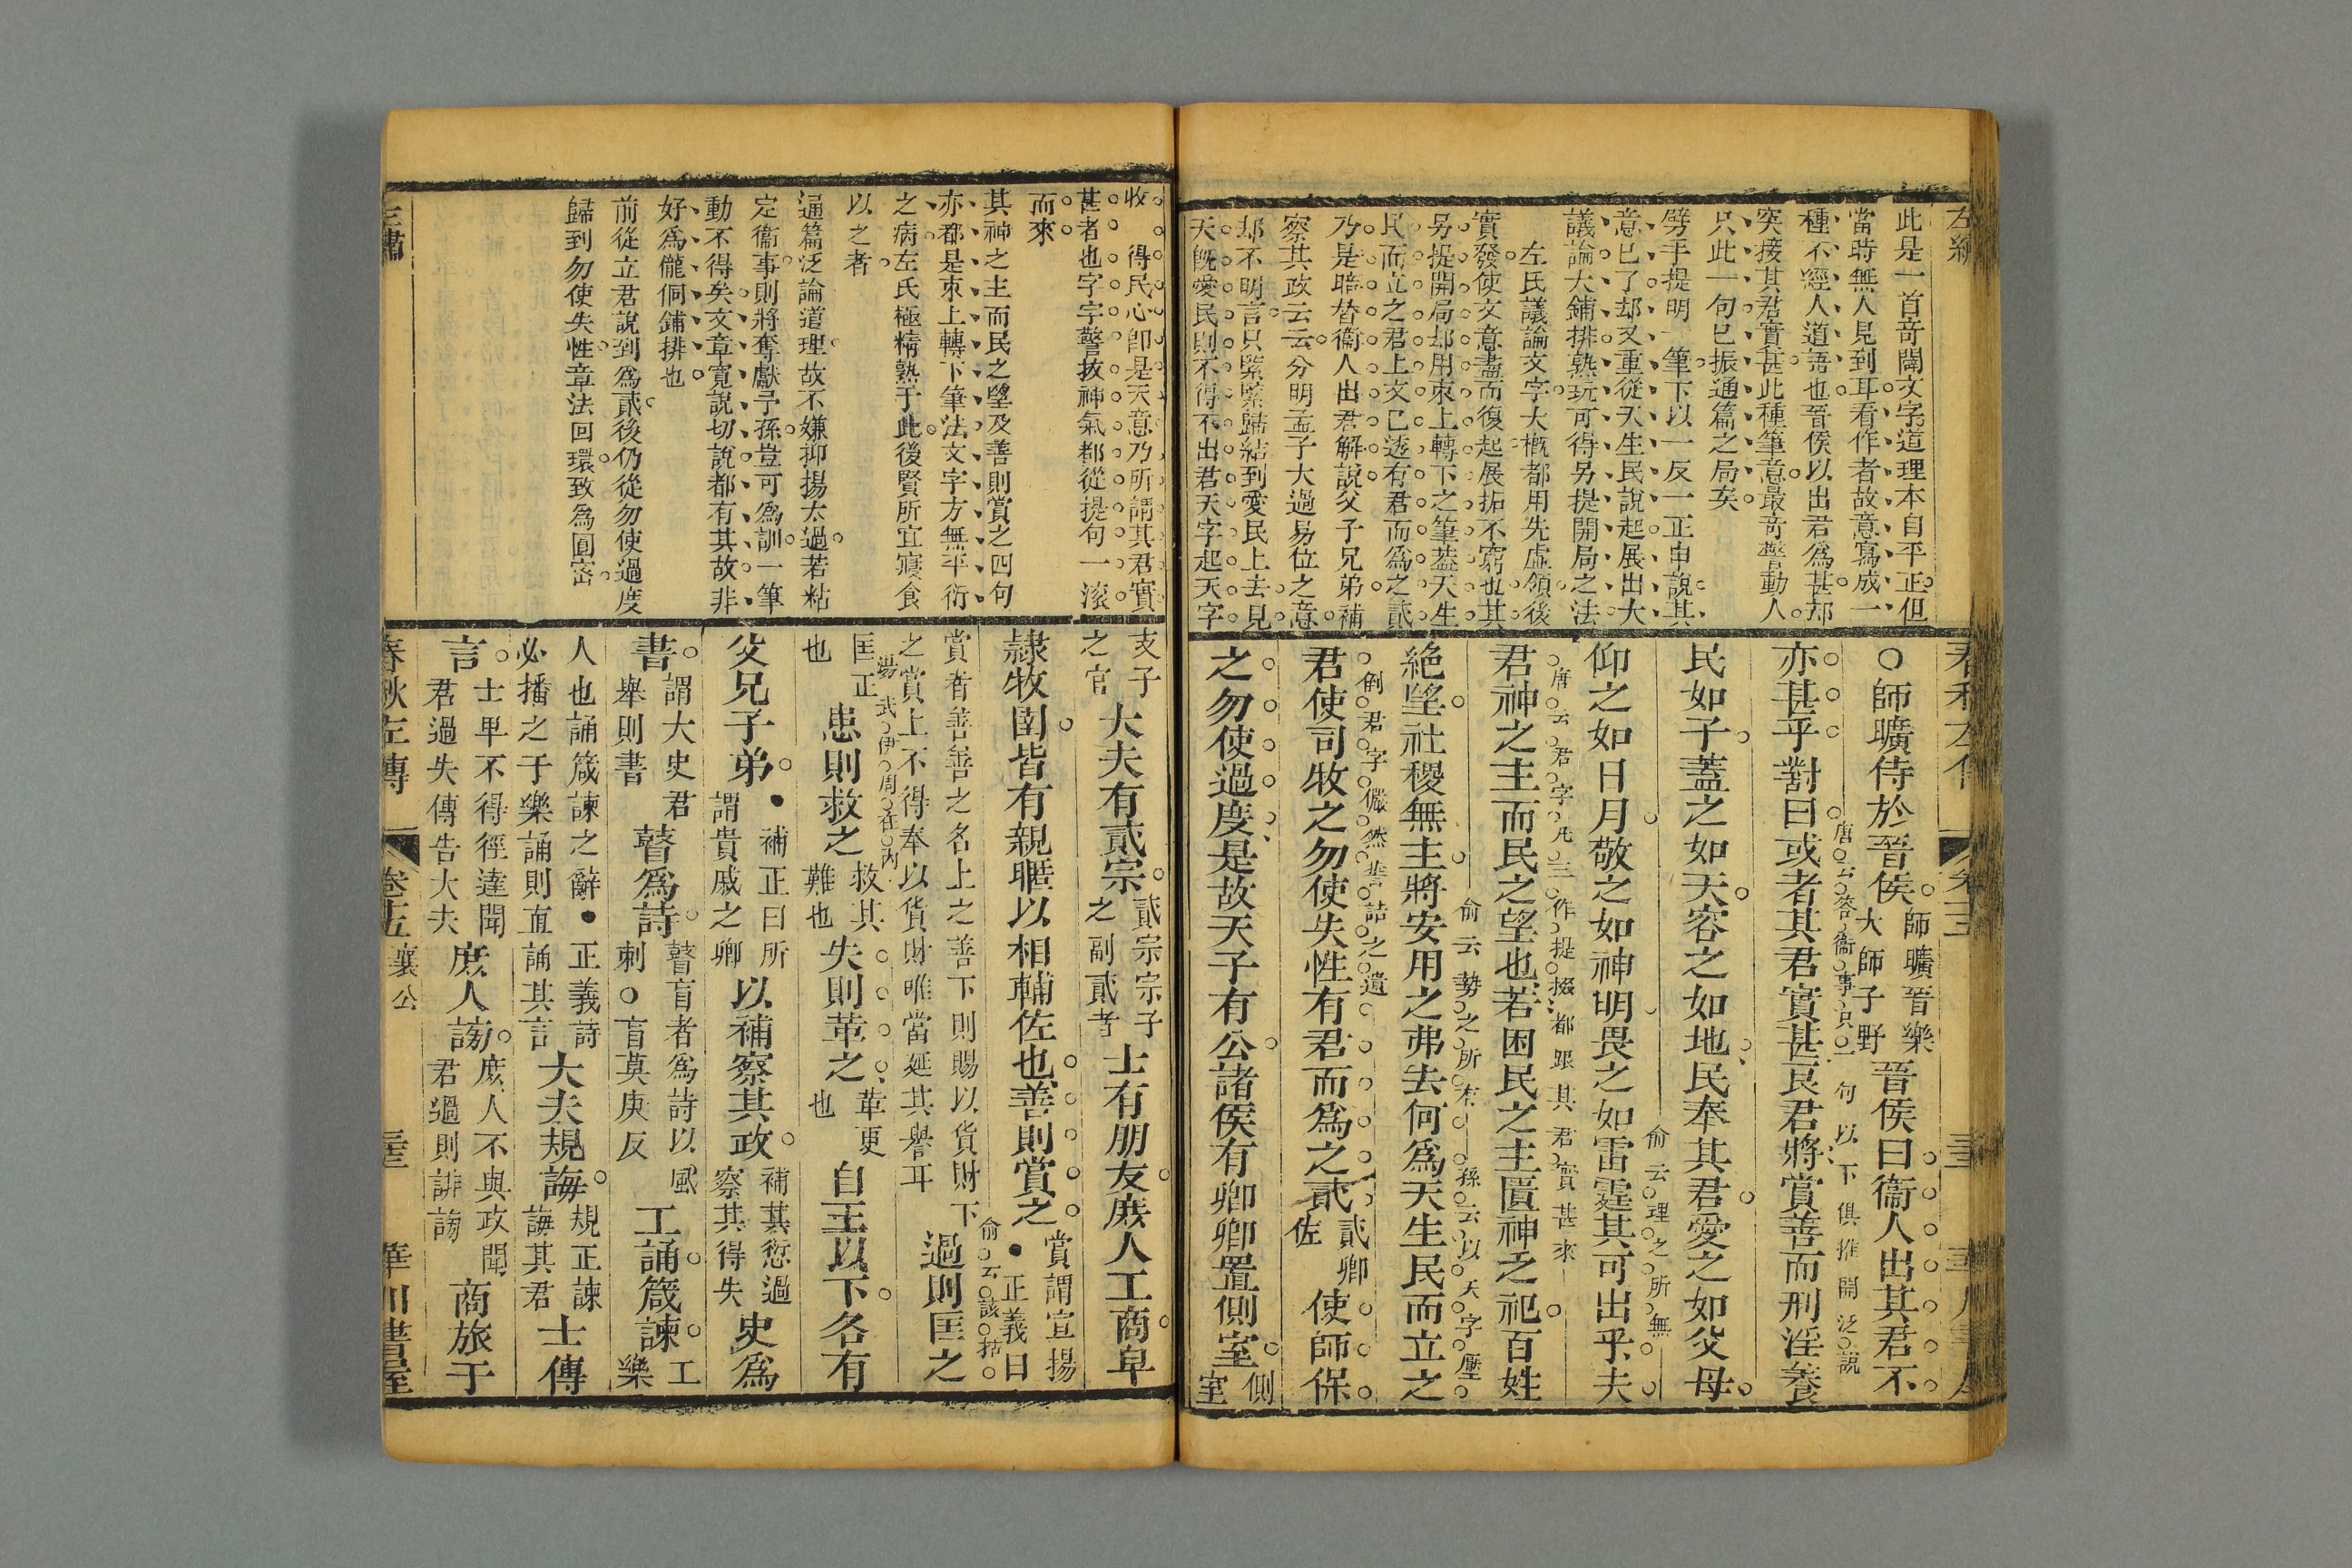 此是一首奇闢文字道理本自平正但
當時無人見到耳看作者故意寫成一
種不經人道語也晉侯以出君爲甚却
突接其君實甚此種筆意最奇警動人
只此一句已振通篇之局矣
劈手提明一筆下以一反一正申說其
意已了却又重從天生民說起展出大
議論大鋪排熟玩可得另提開局之法
左氏議論文字大概都用先虛領後
實發使文意盡而復起展拓不窮也其
另提開局却用束上轉下之筆蓋天生
民而立之君上文已透有君而爲之貳
乃是暗替衞人出君解說父子兄弟補
察其政云云分明孟子大過易位之意
却不明言只緊緊歸結到愛民上去見
天旣愛民則不得不出君天字起天字
○師曠侍於晉侯師曠晉樂大師子野晉侯曰衞人出其君不
唐云答衞事只一句以下俱推開泛說
亦甚乎對曰或者其君實甚良君將賞善而刑淫養
民如子蓋之如天容之如地民奉其君愛之如父母
俞云理之所無
仰之如日月敬之如神明畏之如雷霆其可出乎夫
唐云君字凡三作提掇都跟其君實甚來
君神之主而民之望也若困民之主匱神乏祀百姓
俞云勢之所有 孫云以天字壓
絶望社稷無主將安用之弗去何爲天生民而立之
倒君字儼然誓誥之遺
君使司牧之勿使失性有君而爲之貳貳卿佐使師保
之勿使過度是故天子有公諸侯有卿卿置側室側室
收 得民心卽是天意乃所謂其君實
甚者也字字警拔神氣都從提句一滾
而來
其神之主而民之望及善則賞之四句
亦都是束上轉下筆法文字方無平衍
之病左氏極精熟于此後賢所宜寢食
以之者
通篇泛論道理故不嫌抑揚太過若粘
定衞事則將奪獻子孫豈可爲訓一筆
動不得矣文章寛說切說都有其故非
好爲儱侗鋪排也
前從立君說到爲貳後仍從勿使過度
歸到勿使失性章法回環致爲圓密
支子之官大夫有貳宗貳宗宗子之副貳者士有朋友庶人工商皁
隷牧圉皆有親暱以相輔佐也善則賞之賞謂宣揚●正義曰
俞云該括
賞者善善之名上之善下則賜以貨財下之賞上不得奉以貨財唯當延其譽耳過則匡之
湯武伊周在内
匡正也患則救之救其難也失則革之革更也自王以下各有
父兄子弟●補正曰所謂貴戚之卿以補察其政補其愆過察其得失史爲
書謂大史君舉則書瞽爲詩瞽盲者爲詩以風刺○盲莫庚反工誦箴諫工樂
人也誦箴諫之辭●正義詩必播之于樂誦則直誦其言大夫規誨規正諫誨其君士傳
言士卑不得徑達聞君過失傳告大夫庶人謗庶人不與政聞君過則誹謗商旅于
春秋左傳 卷十五 襄公 華川書屋